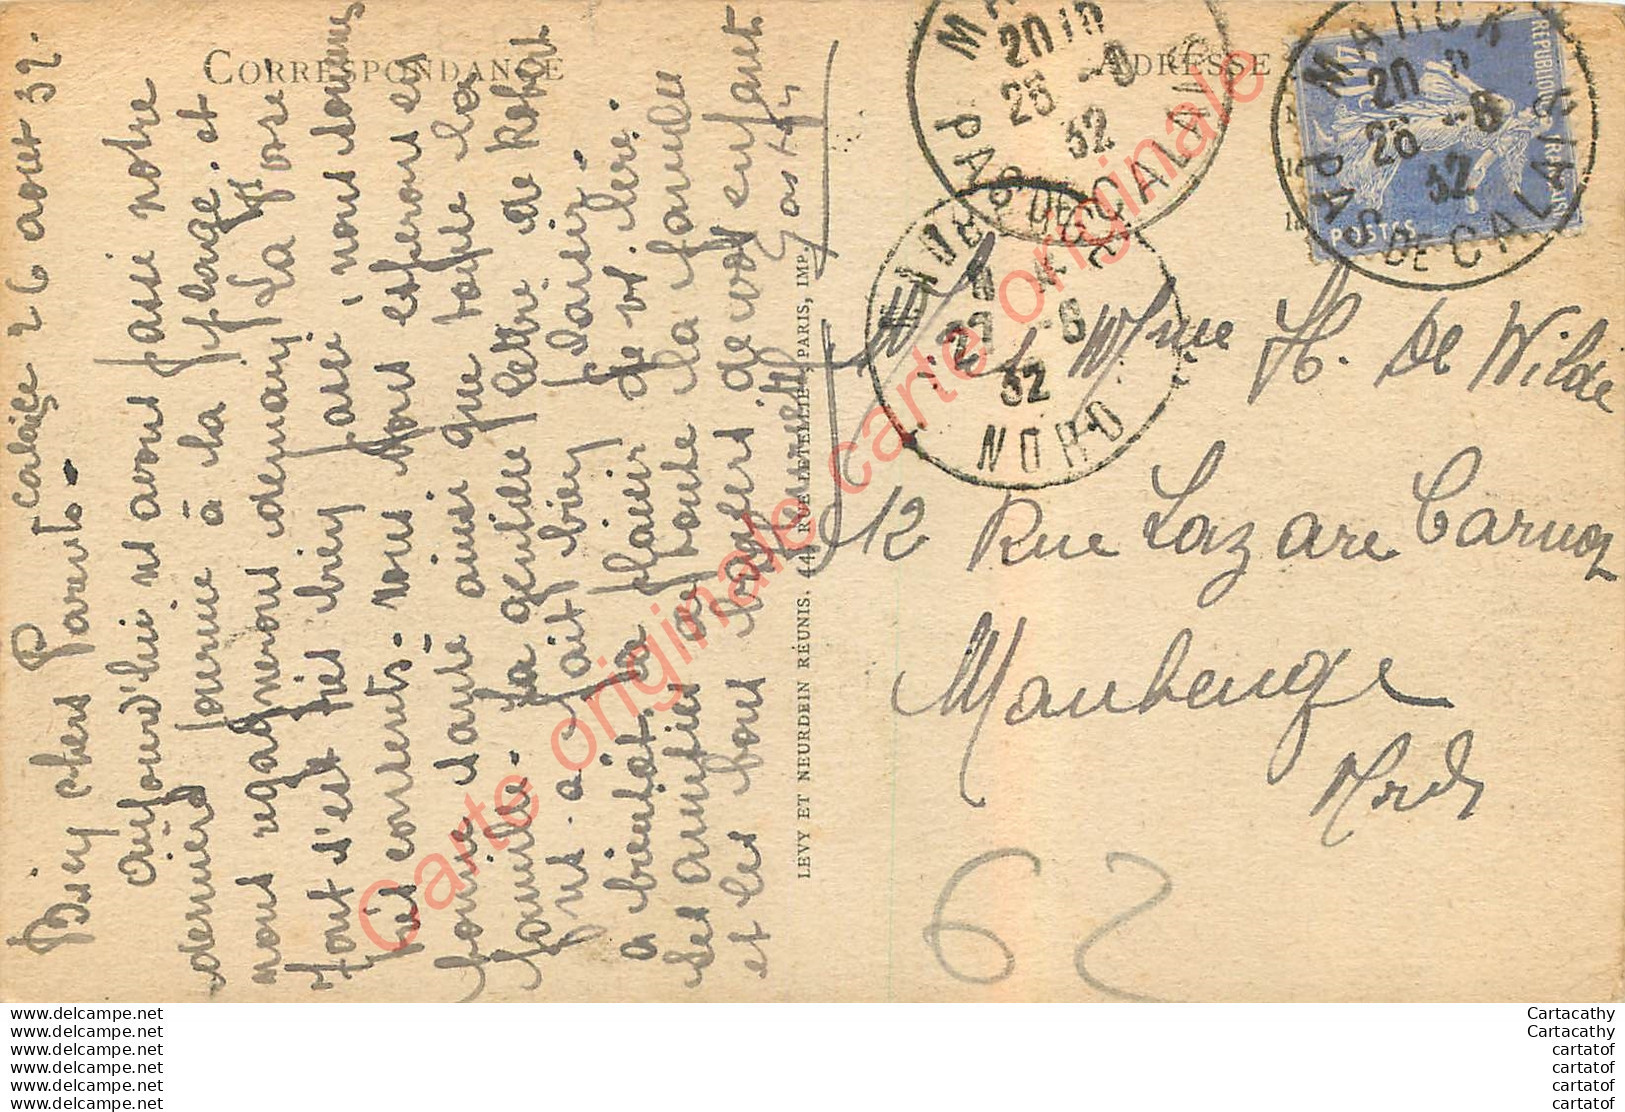 CORRESPONDANCE
Calais 26 aout 32.
Bien chers Parents.
Aujourd'hui ns avons passé notre
dernière journée à la plage. et
nous regagnerons demain La
Tout s'est très bien passé, nous sommes
très contents. nous vous espérons en
bonne santé ainsi que toute la
famille. La gentille lettre de Robert
nous a fait bien plaisir.
A bientôt le plaisir de vs. lire.
Les amitiés à toute la famille
et les bons baisers de vos enfants
LEVY ET NEURDEIN RÉUNIS, 44, RUE LETELLIER, PARIS, IMP.
ADRESSE
MARCK
20
26 -8
32
PAS DE CALAIS
MARCK
20
26 -8
32
PAS DE CALAIS
REPUBLIQUE FRANÇAISE
POSTES
MAUBEUGE
27 -8
32
NORD
M et Mme H. De Wilde
12 Rue Lazare Carnot
Maubeuge
Nord
62
Carte originale carte originale carte originale
www.delcampe.net
www.delcampe.net
www.delcampe.net
www.delcampe.net
www.delcampe.net
www.delcampe.net
Cartacathy
Cartacathy
cartatof
cartatof
cartatof
cartatof